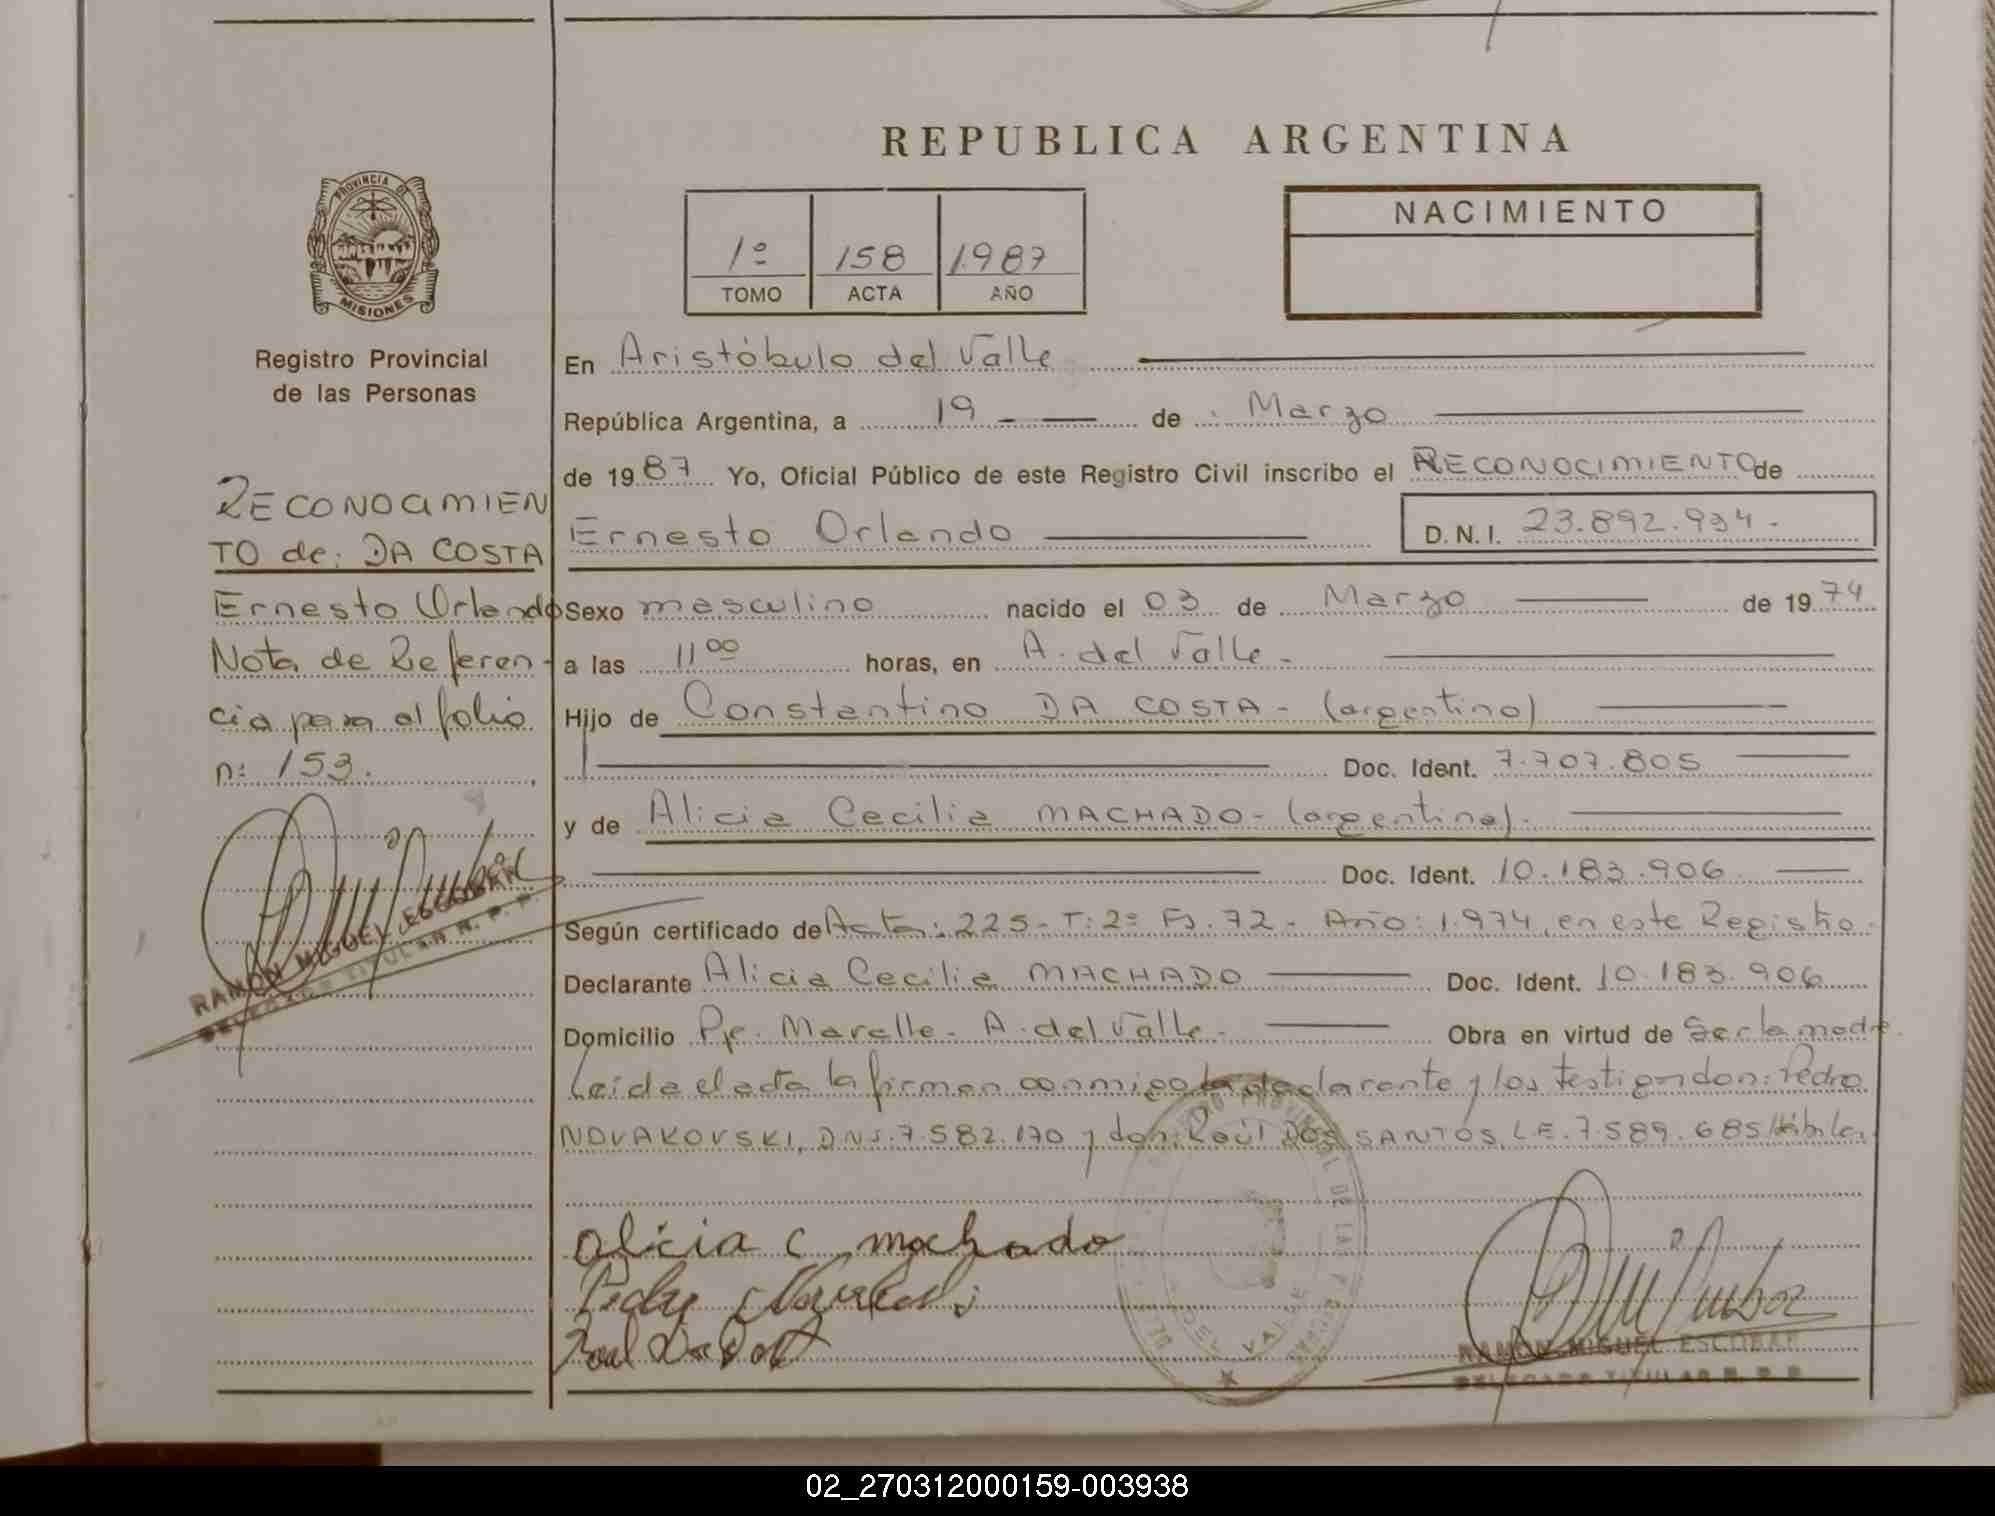 REPUBLICA ARGENTINA
PROVINCIA DE
MISIONES
Registro Provincial
de las Personas
1º 158 1.987
TOMO ACTA AÑO
NACIMIENTO
RECONOCIMIEN
TO de: DA COSTA
Ernesto Orlando
Nota de Referen-
cia para al folio
nº 153.
RAMON MIGUEL ESCOBAR
DELEGADO TITULAR R. P. P.
En Aristóbulo del Valle
República Argentina, a 19 - de Marzo
de 1987 Yo, Oficial Público de este Registro Civil inscribo el RECONOCIMIENTO de
Ernesto Orlando D.N.I. 23.892.934.-
Sexo masculino nacido el 03 de Marzo de 1974
a las 11ºº horas, en A. del Valle -
Hijo de Constantino DA COSTA - (argentino)
Doc. Ident. 7.707.805
y de Alicia Cecilia MACHADO - (argentina).
Doc. Ident. 10.183.906
Según certificado de Acta: 225 - T: 2º Fj. 72 - Año: 1.974, en este Registro.
Declarante Alicia Cecilia MACHADO Doc. Ident. 10.183.906
Domicilio Pje. Marelle - A. del Valle - Obra en virtud de Ser la madre.
Leida el acta la firman conmigo la declarante y los testigos don: Pedro
NOVAKOVSKI, DNI. 7.582.170 y don: Raúl DOS SANTOS, L.E. 7.589.685
Alicia C machado
RAMON MIGUEL ESCOBAR
DELEGADO TITULAR R. P. P.
02_270312000159-003938